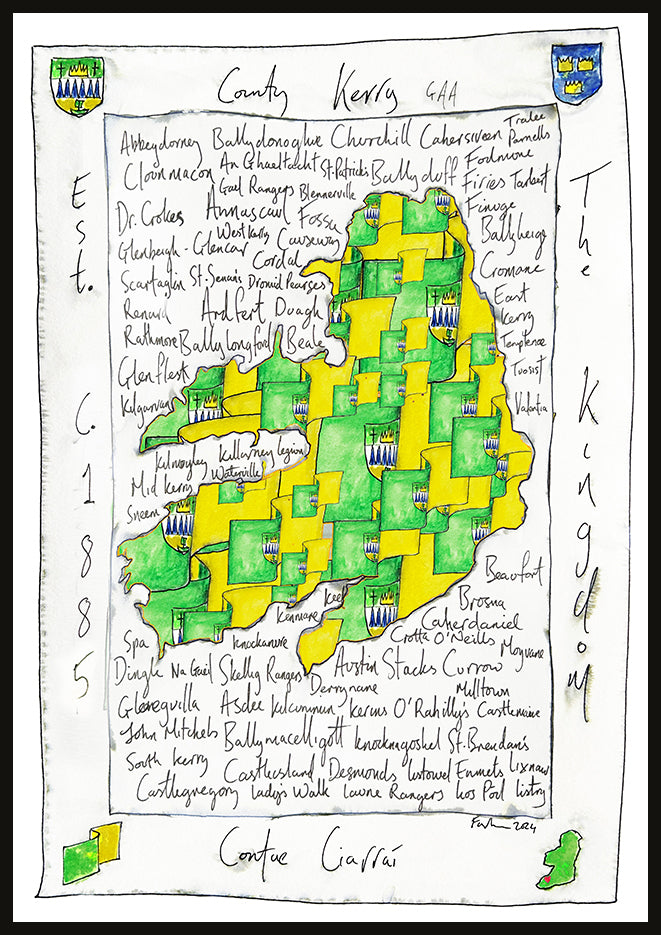 County Kerry GAA
Est. C. 1885
The Kingdom
Abbeydorney Ballydonoghue Churchill Cahersiveen Tralee Parnells
Cloonmacon An Ghaeltacht St. Patricks Ballyduff Fodmore
Gael Rangers Blennerville Firies Tarbert
Dr. Crokes Annascaul Fossa Finuge
West Kerry
Glenbeigh-Glencar Causeway Ballyheige
Cordal Cromane
Scartaglin St. Senans Dromid Pearses East
Renard Ardfert Duagh Kerry
Rathmore Ballylongford Beale Templenoe
Glenflesk Tuosist
Kilgarvan Valentia
Kilmoyley Killarney legion
Mid Kerry Waterville
Sneem
Beaufort
Keel Brosna
Kenmare Caherdaniel
Spa Knockanure Crotta O'Neills Moyvane
Dingle Na Gaeil Skellig Rangers Austin Stacks Currow
Derrynane Milltown
Gleneguilla Asdee Kilcummin Kerins O'Rahilly's Castlemaine
John Mitchels Ballymacelligott Knocknagoshel St. Brendan's
South Kerry Castleisland Desmonds listowel Emmets Lixnaw
Castlegregory lady's Walk laune Rangers los Pól listry
2024
Contae Ciarraí